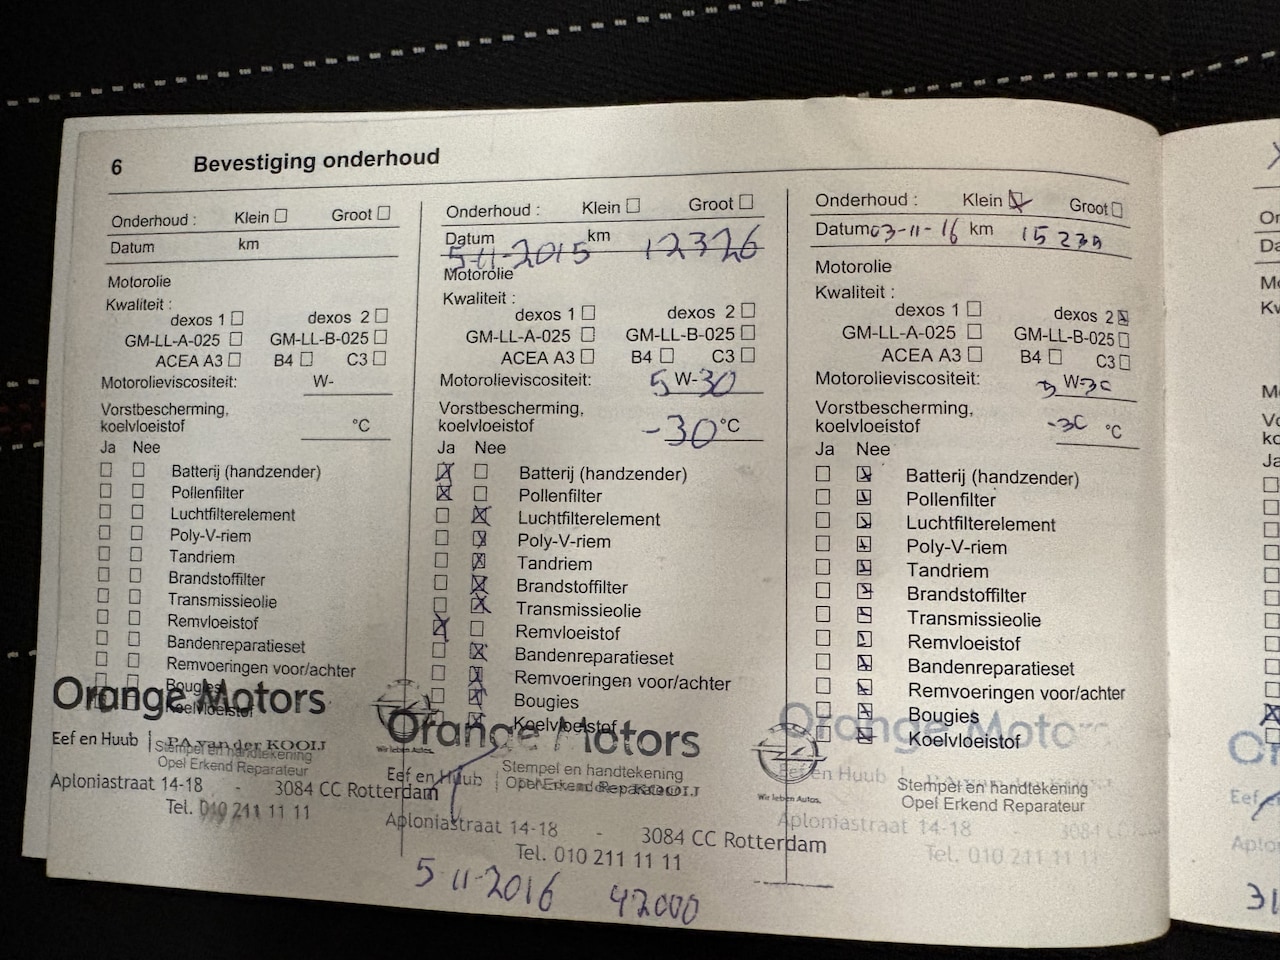 6 Bevestiging onderhoud
Onderhoud : Klein Groot
Datum km
Motorolie
Kwaliteit :
dexos 1 dexos 2
GM-LL-A-025 GM-LL-B-025
ACEA A3 B4 C3
Motorolieviscositeit: W-
Vorstbescherming,
koelvloeistof °C
Ja Nee
Batterij (handzender)
Pollenfilter
Luchtfilterelement
Poly-V-riem
Tandriem
Brandstoffilter
Transmissieolie
Remvloeistof
Bandenreparatieset
Remvoeringen voor/achter
Bougies
Koelvloeistof
Orange Motors
Eef en Huub | P.A. van der KOOIJ
Stempel en handtekening
Opel Erkend Reparateur
Aploniastraat 14-18 - 3084 CC Rotterdam
Tel. 010 211 11 11
Onderhoud : Klein Groot
Datum 5-11-2015 km 12326
Motorolie
Kwaliteit :
dexos 1 dexos 2
GM-LL-A-025 GM-LL-B-025
ACEA A3 B4 C3
Motorolieviscositeit: 5 W-30
Vorstbescherming,
koelvloeistof -30 °C
Ja Nee
Batterij (handzender)
Pollenfilter
Luchtfilterelement
Poly-V-riem
Tandriem
Brandstoffilter
Transmissieolie
Remvloeistof
Bandenreparatieset
Remvoeringen voor/achter
Bougies
Koelvloeistof
Orange Motors
Wir leben Autos.
Eef en Huub KOOIJ
Stempel en handtekening
Opel Erkend Reparateur
Aploniastraat 14-18 - 3084 CC Rotterdam
Tel. 010 211 11 11
5-11-2016 42000
Onderhoud : Klein Groot
Datum 03-11-16 km 15239
Motorolie
Kwaliteit :
dexos 1 dexos 2
GM-LL-A-025 GM-LL-B-025
ACEA A3 B4 C3
Motorolieviscositeit: 5 W-30
Vorstbescherming,
koelvloeistof -30 °C
Ja Nee
Batterij (handzender)
Pollenfilter
Luchtfilterelement
Poly-V-riem
Tandriem
Brandstoffilter
Transmissieolie
Remvloeistof
Bandenreparatieset
Remvoeringen voor/achter
Bougies
Koelvloeistof
Orange Motors
Wir leben Autos.
Eef en Huub
Stempel en handtekening
Opel Erkend Reparateur
Aploniastraat 14-18 - 3084
Tel. 010 211 11 11
Ja
31